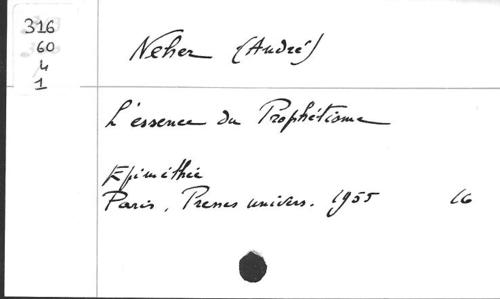 316
60
4
1
Neher (André)
L'essence du Prophétisme
Epiméthée
Paris, Presses univers. 1955 16